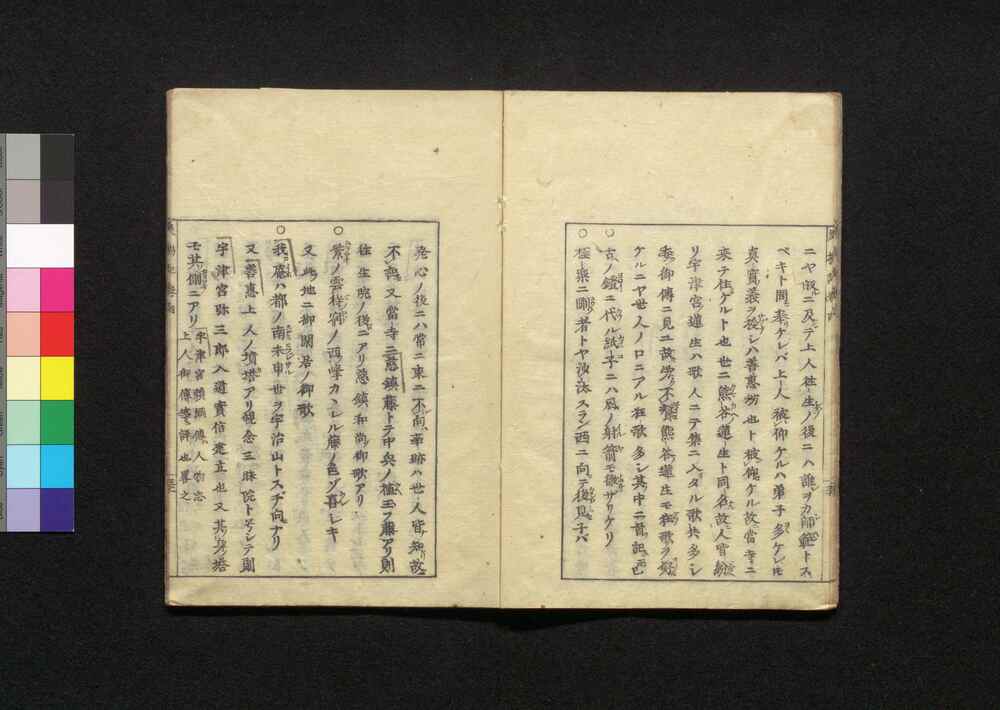 ニヤ及ニ及テ上人往生ノ後ニハ誰ヲカ師範トス
ベキト問奉ケレバ上人被仰ケルハ弟子多ケレ𪜈
真實義ヲ授シハ善惠坊也ト被仰ケル故當寺ニ
来テ住ケルト也世ニ熊谷蓮生ト同名故人皆紛
リ宇津宮蓮生ハ歌人ニテ集ニ入タル歌共多シ
委御傳ニ見ユ故畧不熊谷蓮生モ狂歌ヲ好
ケルニヤ世人ノ口ニアル狂歌多シ其中二首記已
○古ノ鎧ニ代ル紙子ニハ風ノ射箭モ徹ザリケリ
○極楽ニ剛者トヤ沙汰スラン西ニ向テ後見子バ
発心ノ後ニハ常ニ東ニ不向筆跡ハ世ノ人皆知故
不載又當寺ニ慈鎮藤トテ中央ノ植玉フ藤アリ則
往生院ノ後ニアリ慈鎮和尚御歌アリ
○紫ノ雲祥寄ノ西ノ峰カヽレル藤ノ色ゾ喜シキ
又此地ニ御閑居ノ御歌
○我庵ハ都ノ南未申世ヲ宇治山トスヂ向ナリ
又善惠上人ノ墳塔アリ観念三昧院ト号シテ則
宇津宮弥三郎入道實信建立也又其ノ塔
モ其側ニアリ
宇津宮頼綱傳人
上人御傳等ニ詳也畧之